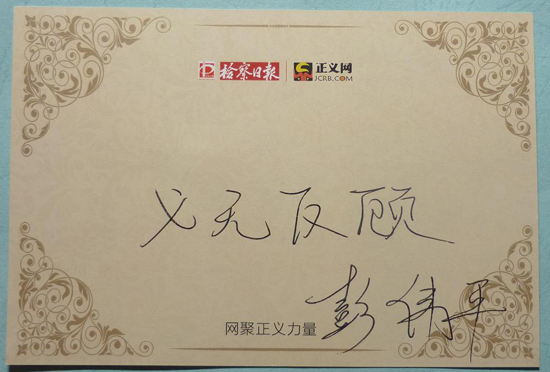 检察日报 正义网
JCRB.COM
义无反顾
网聚正义力量
彭伟平